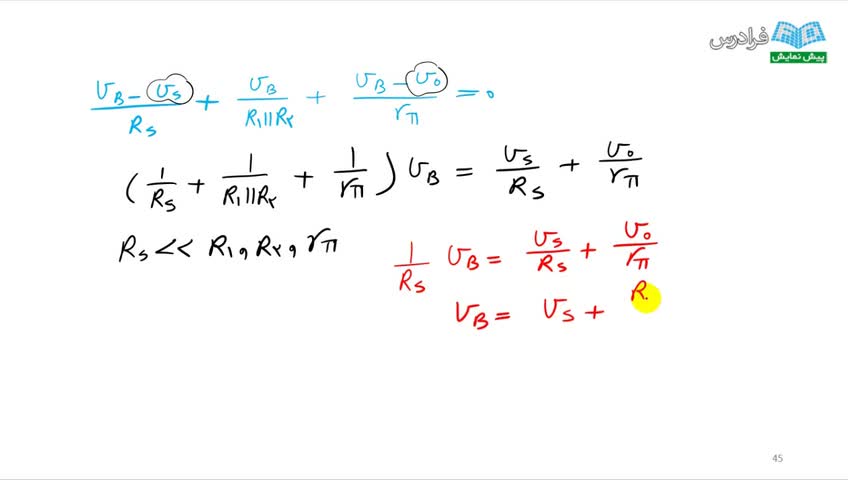 فرادرس
پیش نمایش
(v_B − v_s)/R_s + v_B/(R۱||R۲) + (v_B − v_o)/rπ = ۰
(1/R_s + 1/(R۱||R۲) + 1/rπ) v_B = v_s/R_s + v_o/rπ
R_s << R۱, R۲, rπ
1/R_s v_B = v_s/R_s + v_o/rπ
v_B = v_s + R
45